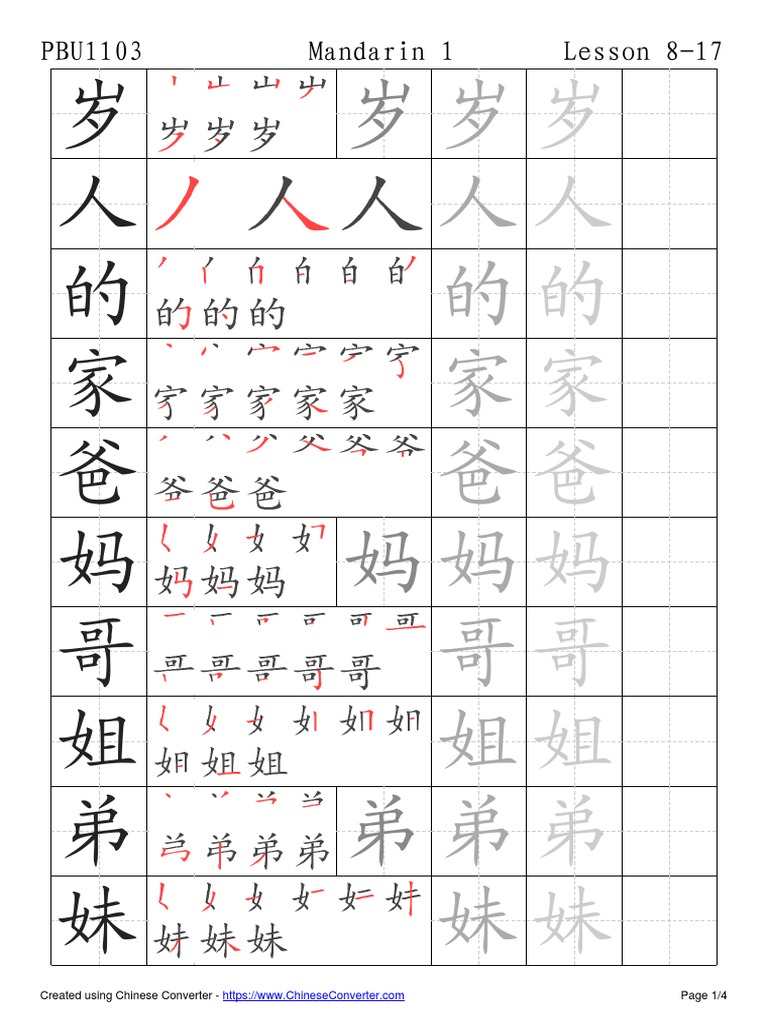 PBU1103 Mandarin 1 Lesson 8-17
岁 岁 岁 岁 岁 岁
人 人 人 人 人
的 的 的 的 的
家 家 家 家
爸 爸 爸 爸 爸
妈 妈 妈 妈 妈 妈
哥 哥 哥 哥 哥
姐 姐 姐 姐 姐
弟 弟 弟 弟 弟
妹 妹 妹 妹 妹
Created using Chinese Converter - https://www.ChineseConverter.com Page 1/4